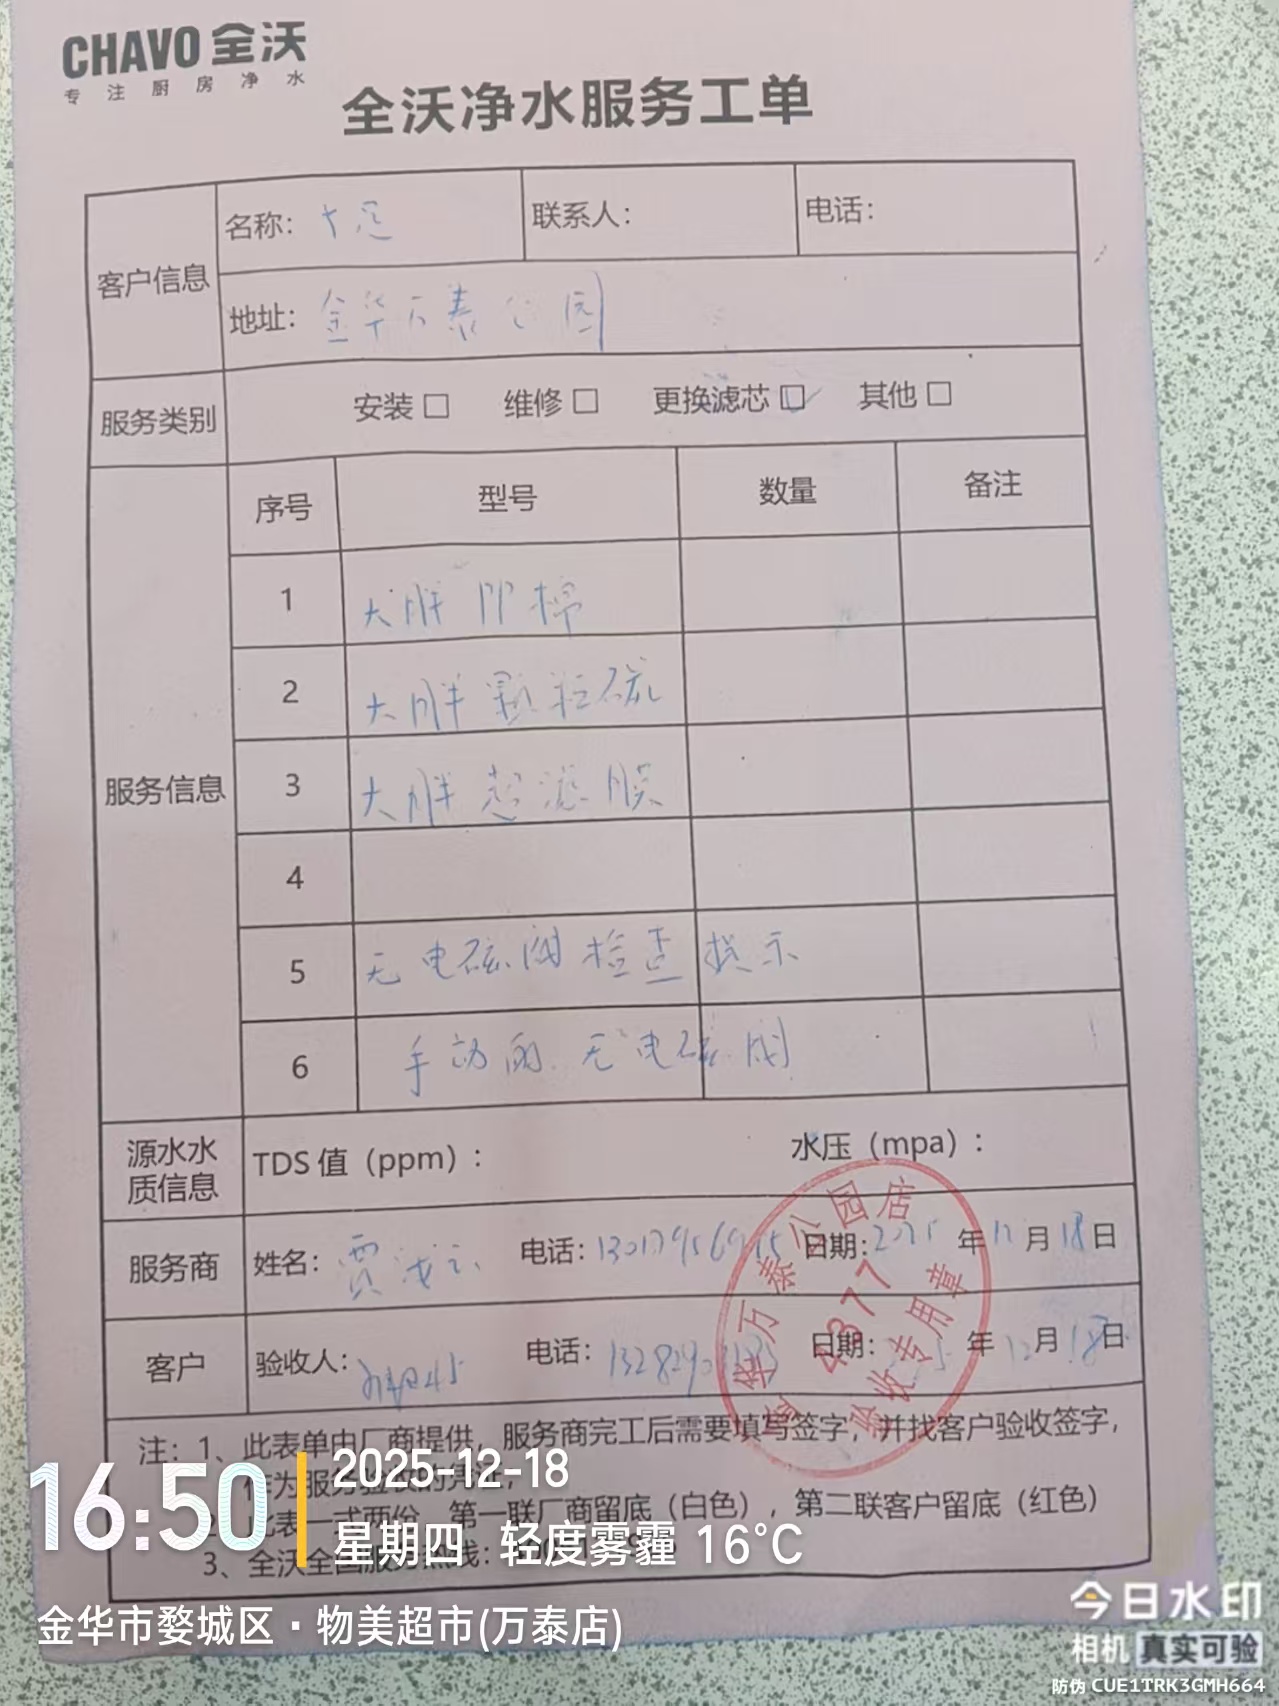 CHAVO 全沃
专注厨房净水
全沃净水服务工单
客户信息
名称：十足
联系人：
电话：
地址：金华万泰公园
服务类别
安装□ 维修□ 更换滤芯☑ 其他□
服务信息
序号 型号 数量 备注
1 大胖PP棉
2 大胖颗粒碳
3 大胖超滤膜
4
5 无电磁阀检查提示
6 手动阀.无电磁阀
源水水质信息
TDS 值（ppm）： 水压（mpa）：
服务商
姓名：贾 电话： 日期：2025年12月18日
客户
验收人： 电话： 日期： 年12月18日
华万泰公园店
4377
验收专用章
注：1、此表单由厂商提供，服务商完工后需要填写签字，并找客户验收签字，
作为服务验收的凭证；
2、此表一式两份，第一联厂商留底（白色），第二联客户留底（红色）
3、全沃全国服务热线：
16:50
2025-12-18
星期四 轻度雾霾 16°C
金华市婺城区·物美超市(万泰店)
今日水印
相机 真实可验
防伪 CUE1TRK3GMH664